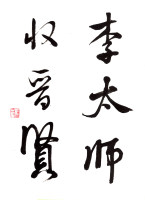 李太师
收晋贤